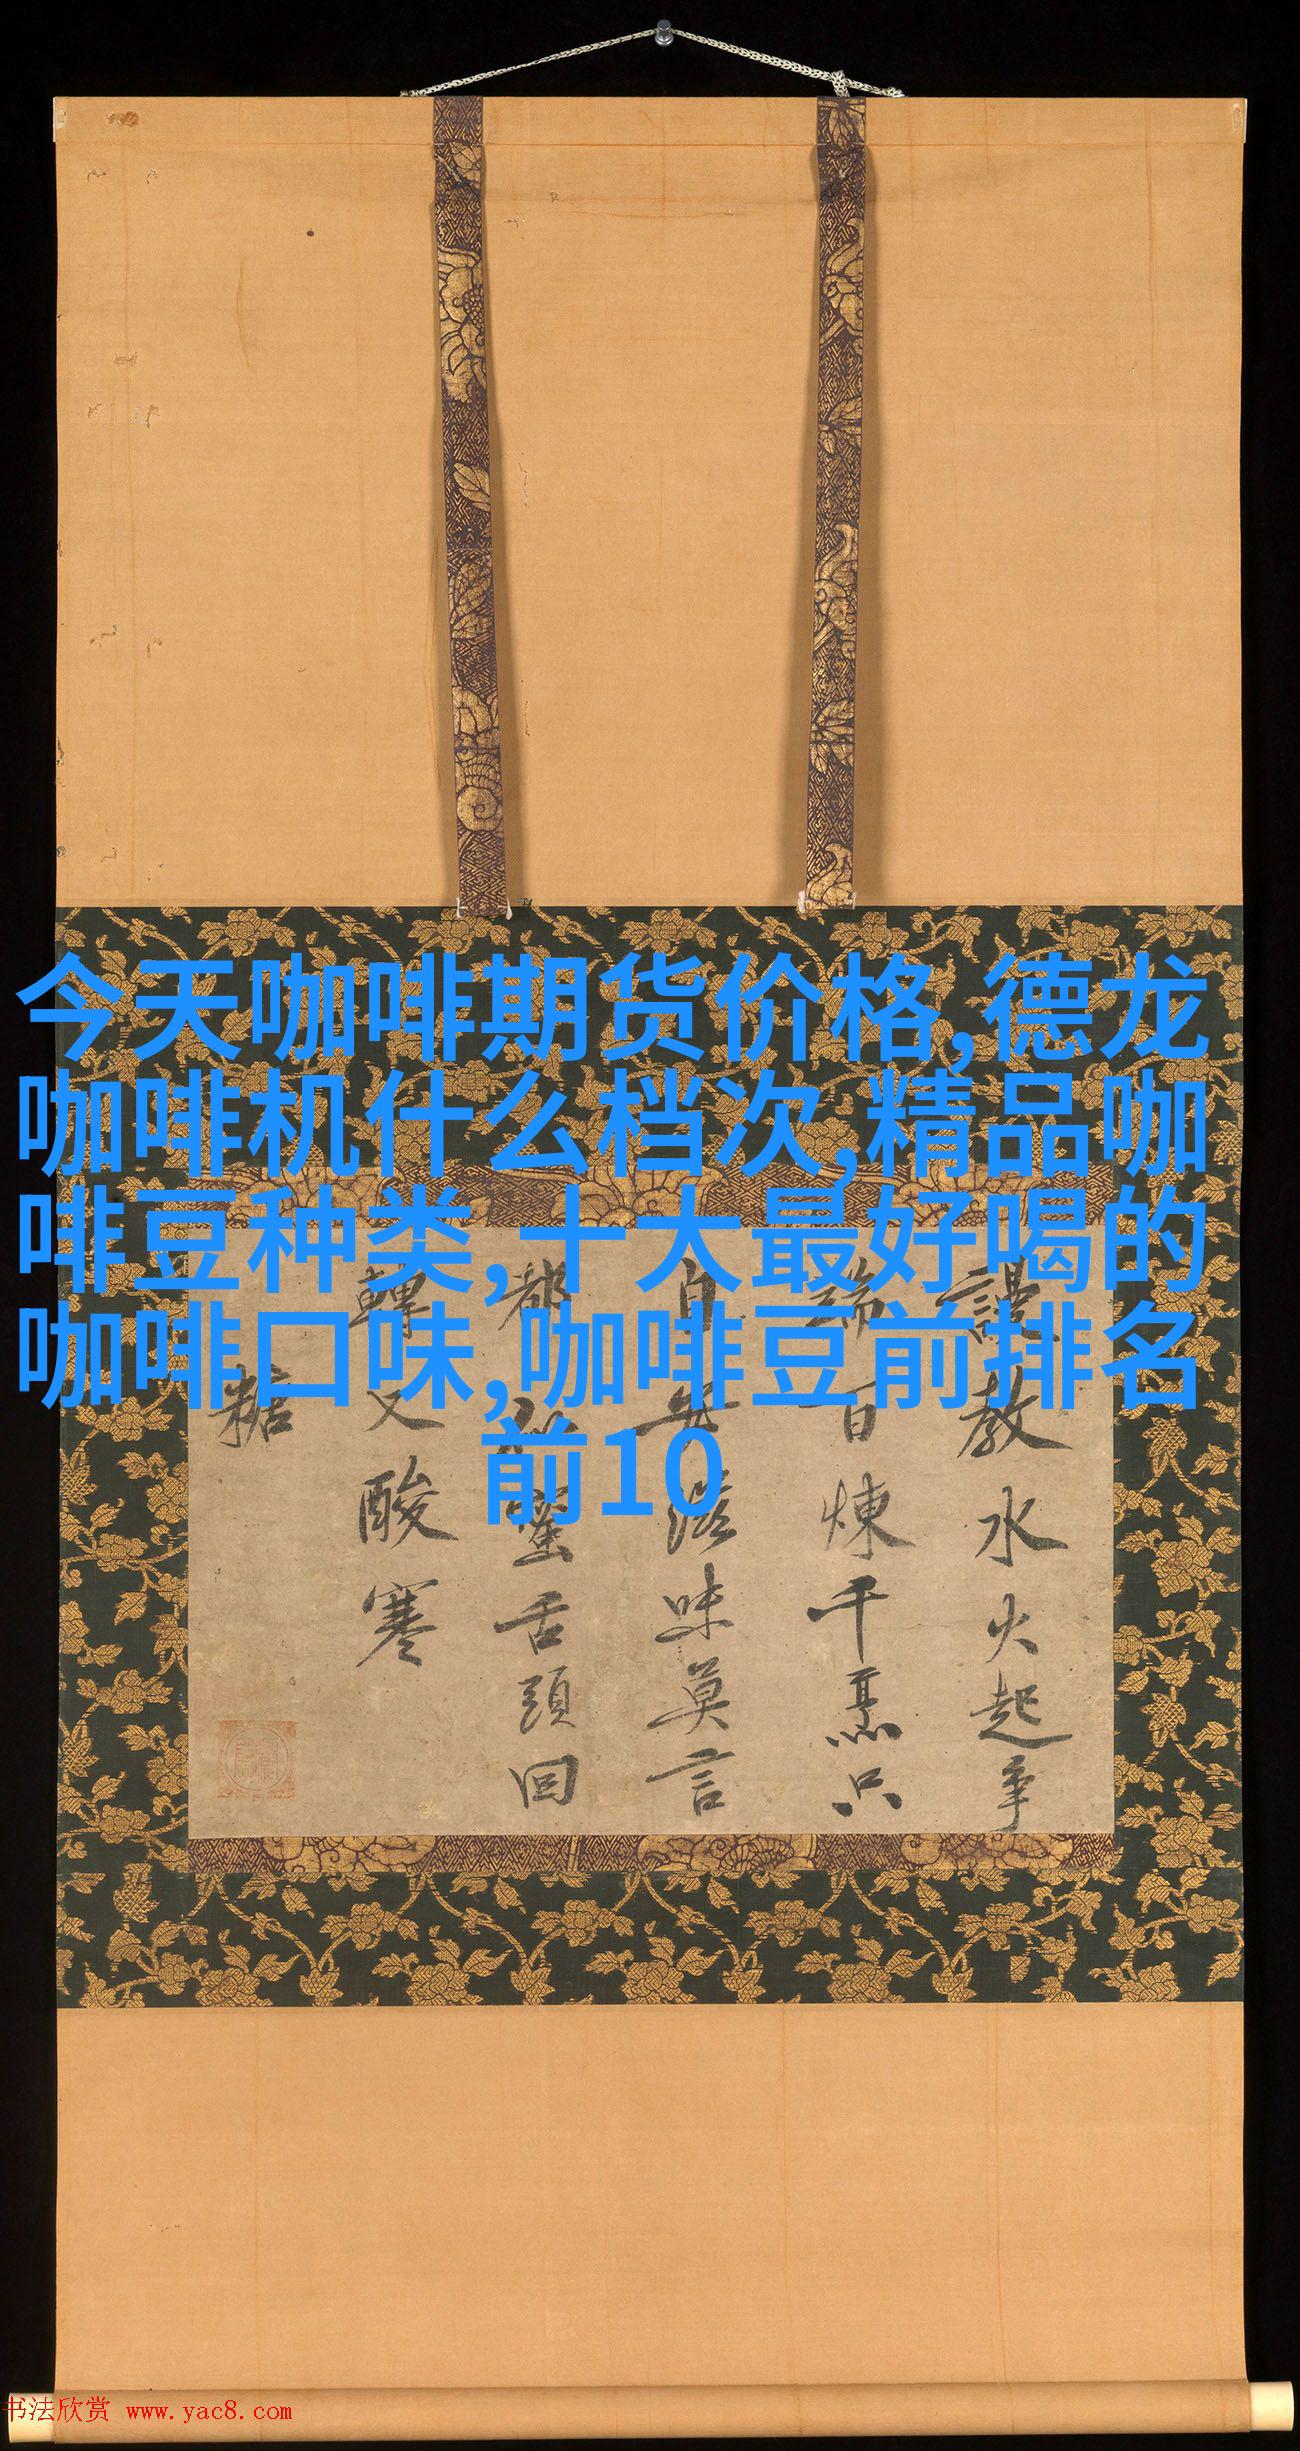 今天咖啡期货价格,德龙
咖啡机什么档次,精品咖
啡豆种类,十大最好喝的
咖啡口味,咖啡豆前排名
前10
謾教水火起争
百煉千烹只
自無滋味莫言
都 蜜舌頭回
轉又酸寒
糖
书法欣赏 www.yac8.com